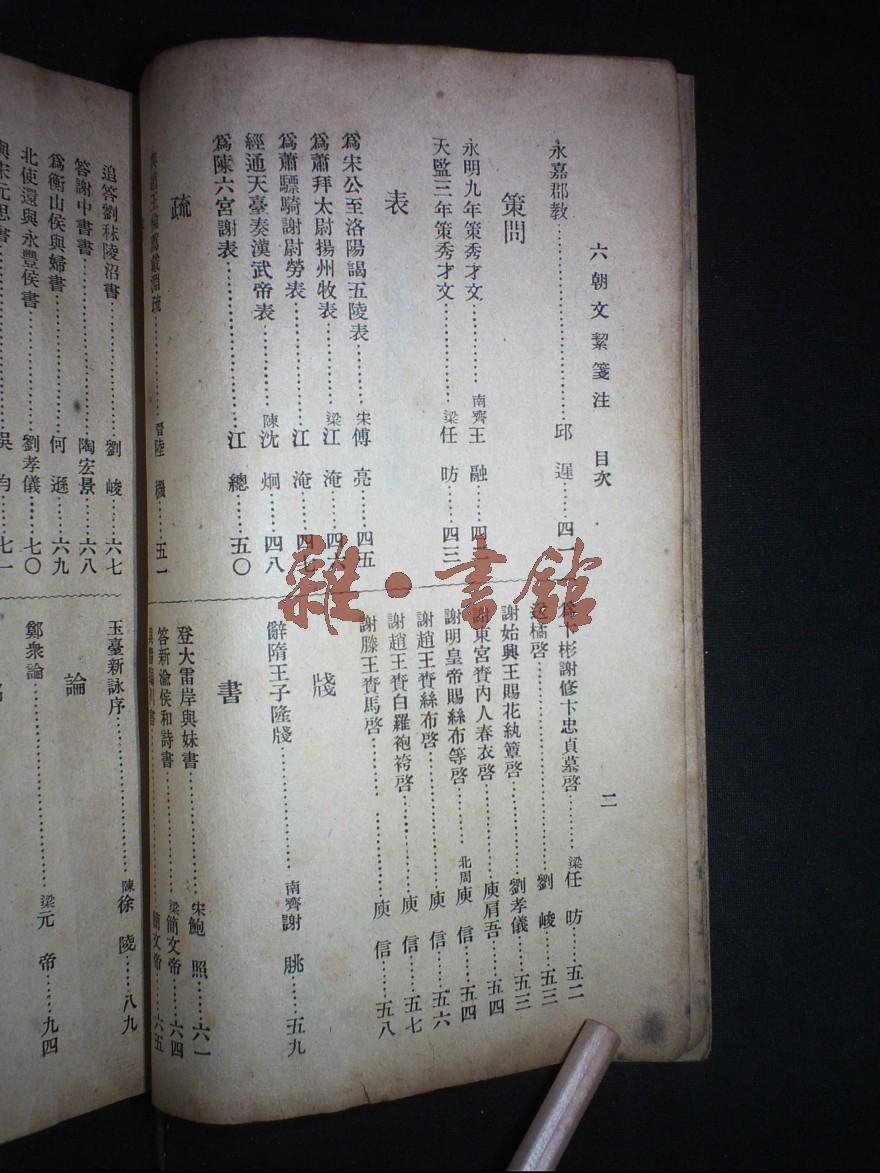 六朝文絜箋注　目次　二
永嘉郡教……邱遲……四一
策問
永明九年策秀才文……南齊王融……四二
天監三年策秀才文……梁任昉……四三
表
爲宋公至洛陽謁五陵表……宋傅亮……四五
爲蕭拜太尉揚州牧表……梁江淹……四六
爲蕭驃騎謝尉勞表……江淹……四七
經通天臺奏漢武帝表……陳沈炯……四八
爲陳六宮謝表……江總……五〇
疏
與趙王倫薦戴淵疏……晉陸機……五一
爲卞彬謝修卞忠貞墓啓……梁任昉……五二
送橘啓……劉峻……五三
謝始興王賜花紈簟啓……劉孝儀……五三
謝東宮賚內人春衣啓……庾肩吾……五四
謝明皇帝賜絲布等啓……北周庾信……五四
謝趙王賚絲布啓……庾信……五六
謝趙王賚白羅袍袴啓……庾信……五七
謝滕王賚馬啓……庾信……五八
牋
辭隋王子隆牋……南齊謝朓……五九
書
登大雷岸與妹書……宋鮑照……六一
答新渝侯和詩書……梁簡文帝……六四
書……簡文帝……六五
追答劉秣陵沼書……劉峻……六七
答謝中書書……陶宏景……六八
爲衡山侯與婦書……何遜……六九
北使還與永豐侯書……劉孝儀……七〇
與宋元思書……吳均……七一
玉臺新詠序……陳徐陵……八九
論
鄭衆論……梁元帝……九四
雜·書館